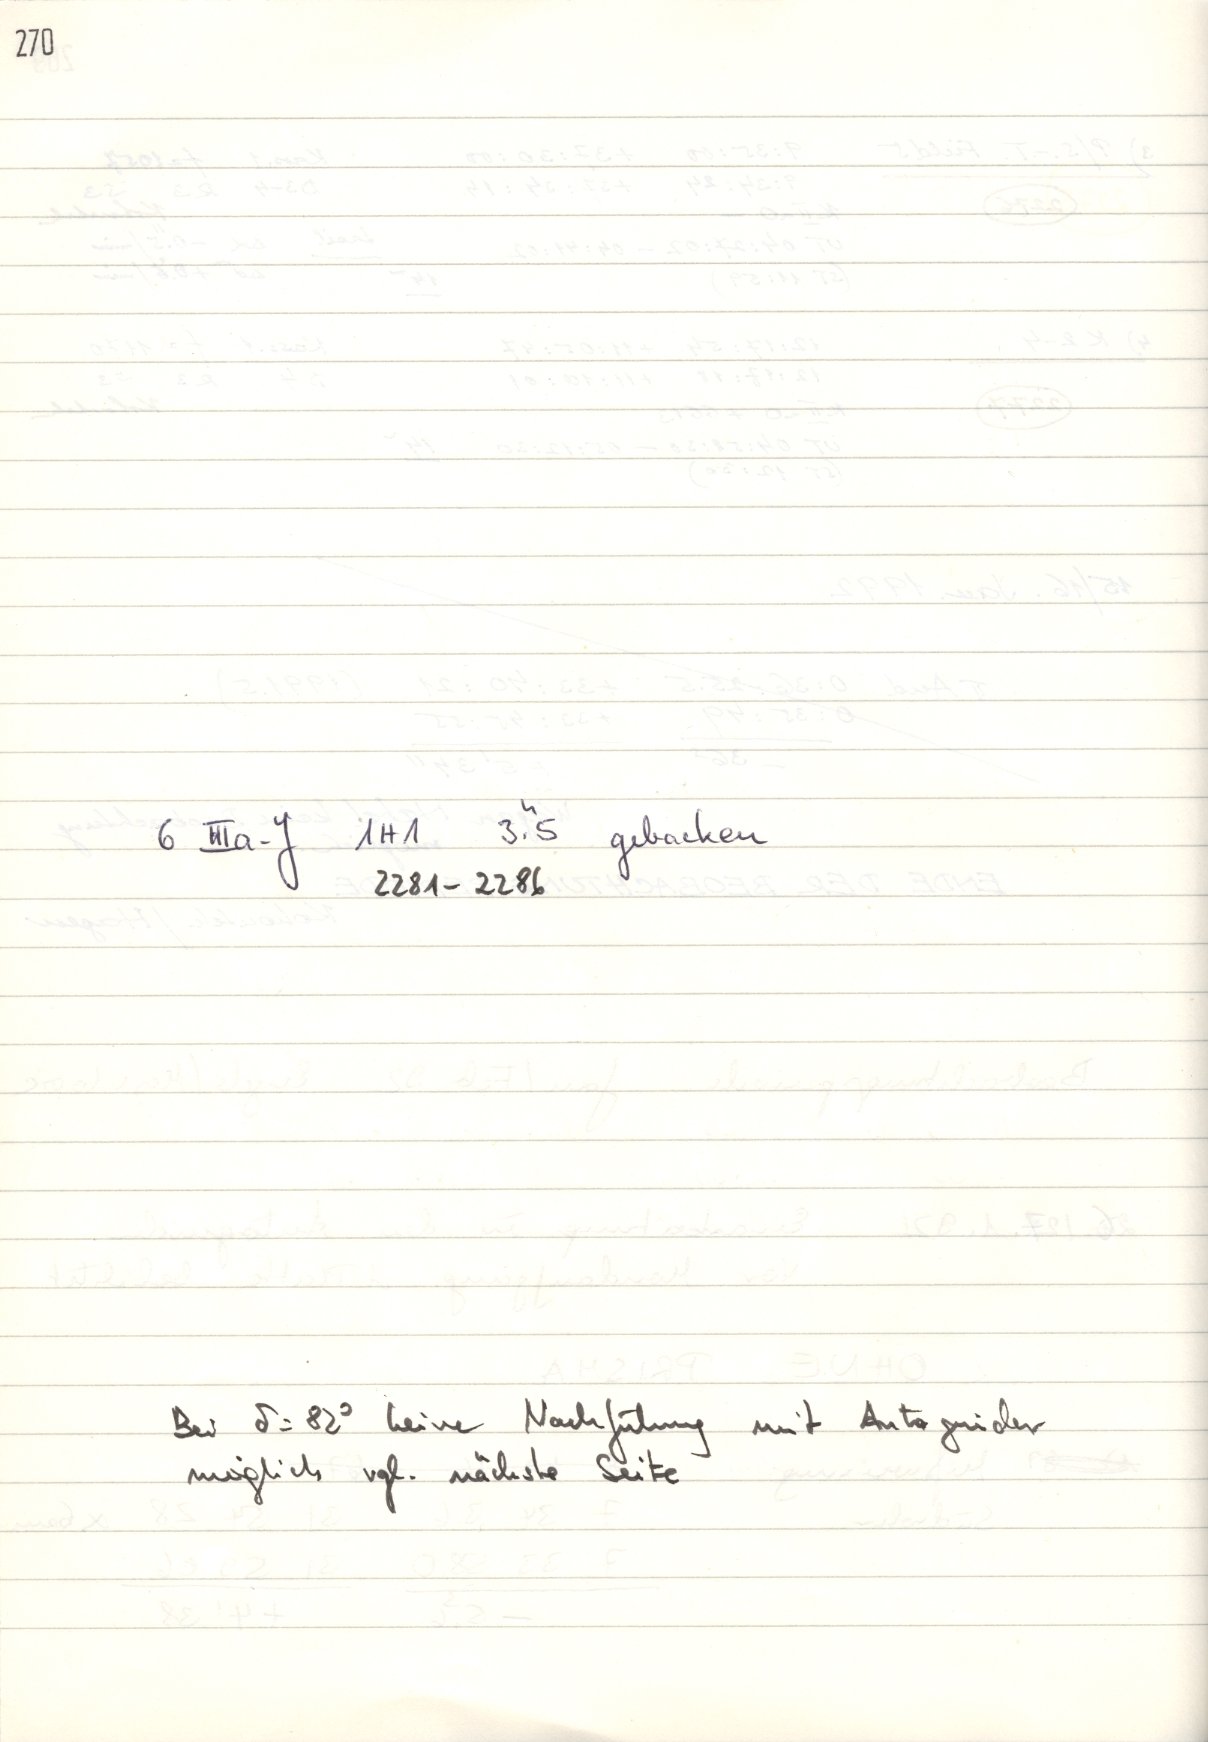 270
6 IIIa-J 1H1 3.ʰ5 gebacken
2281 - 2286
Bei δ = 82° keine Nachführung mit Autoguider
möglich vgl. nächste Seite